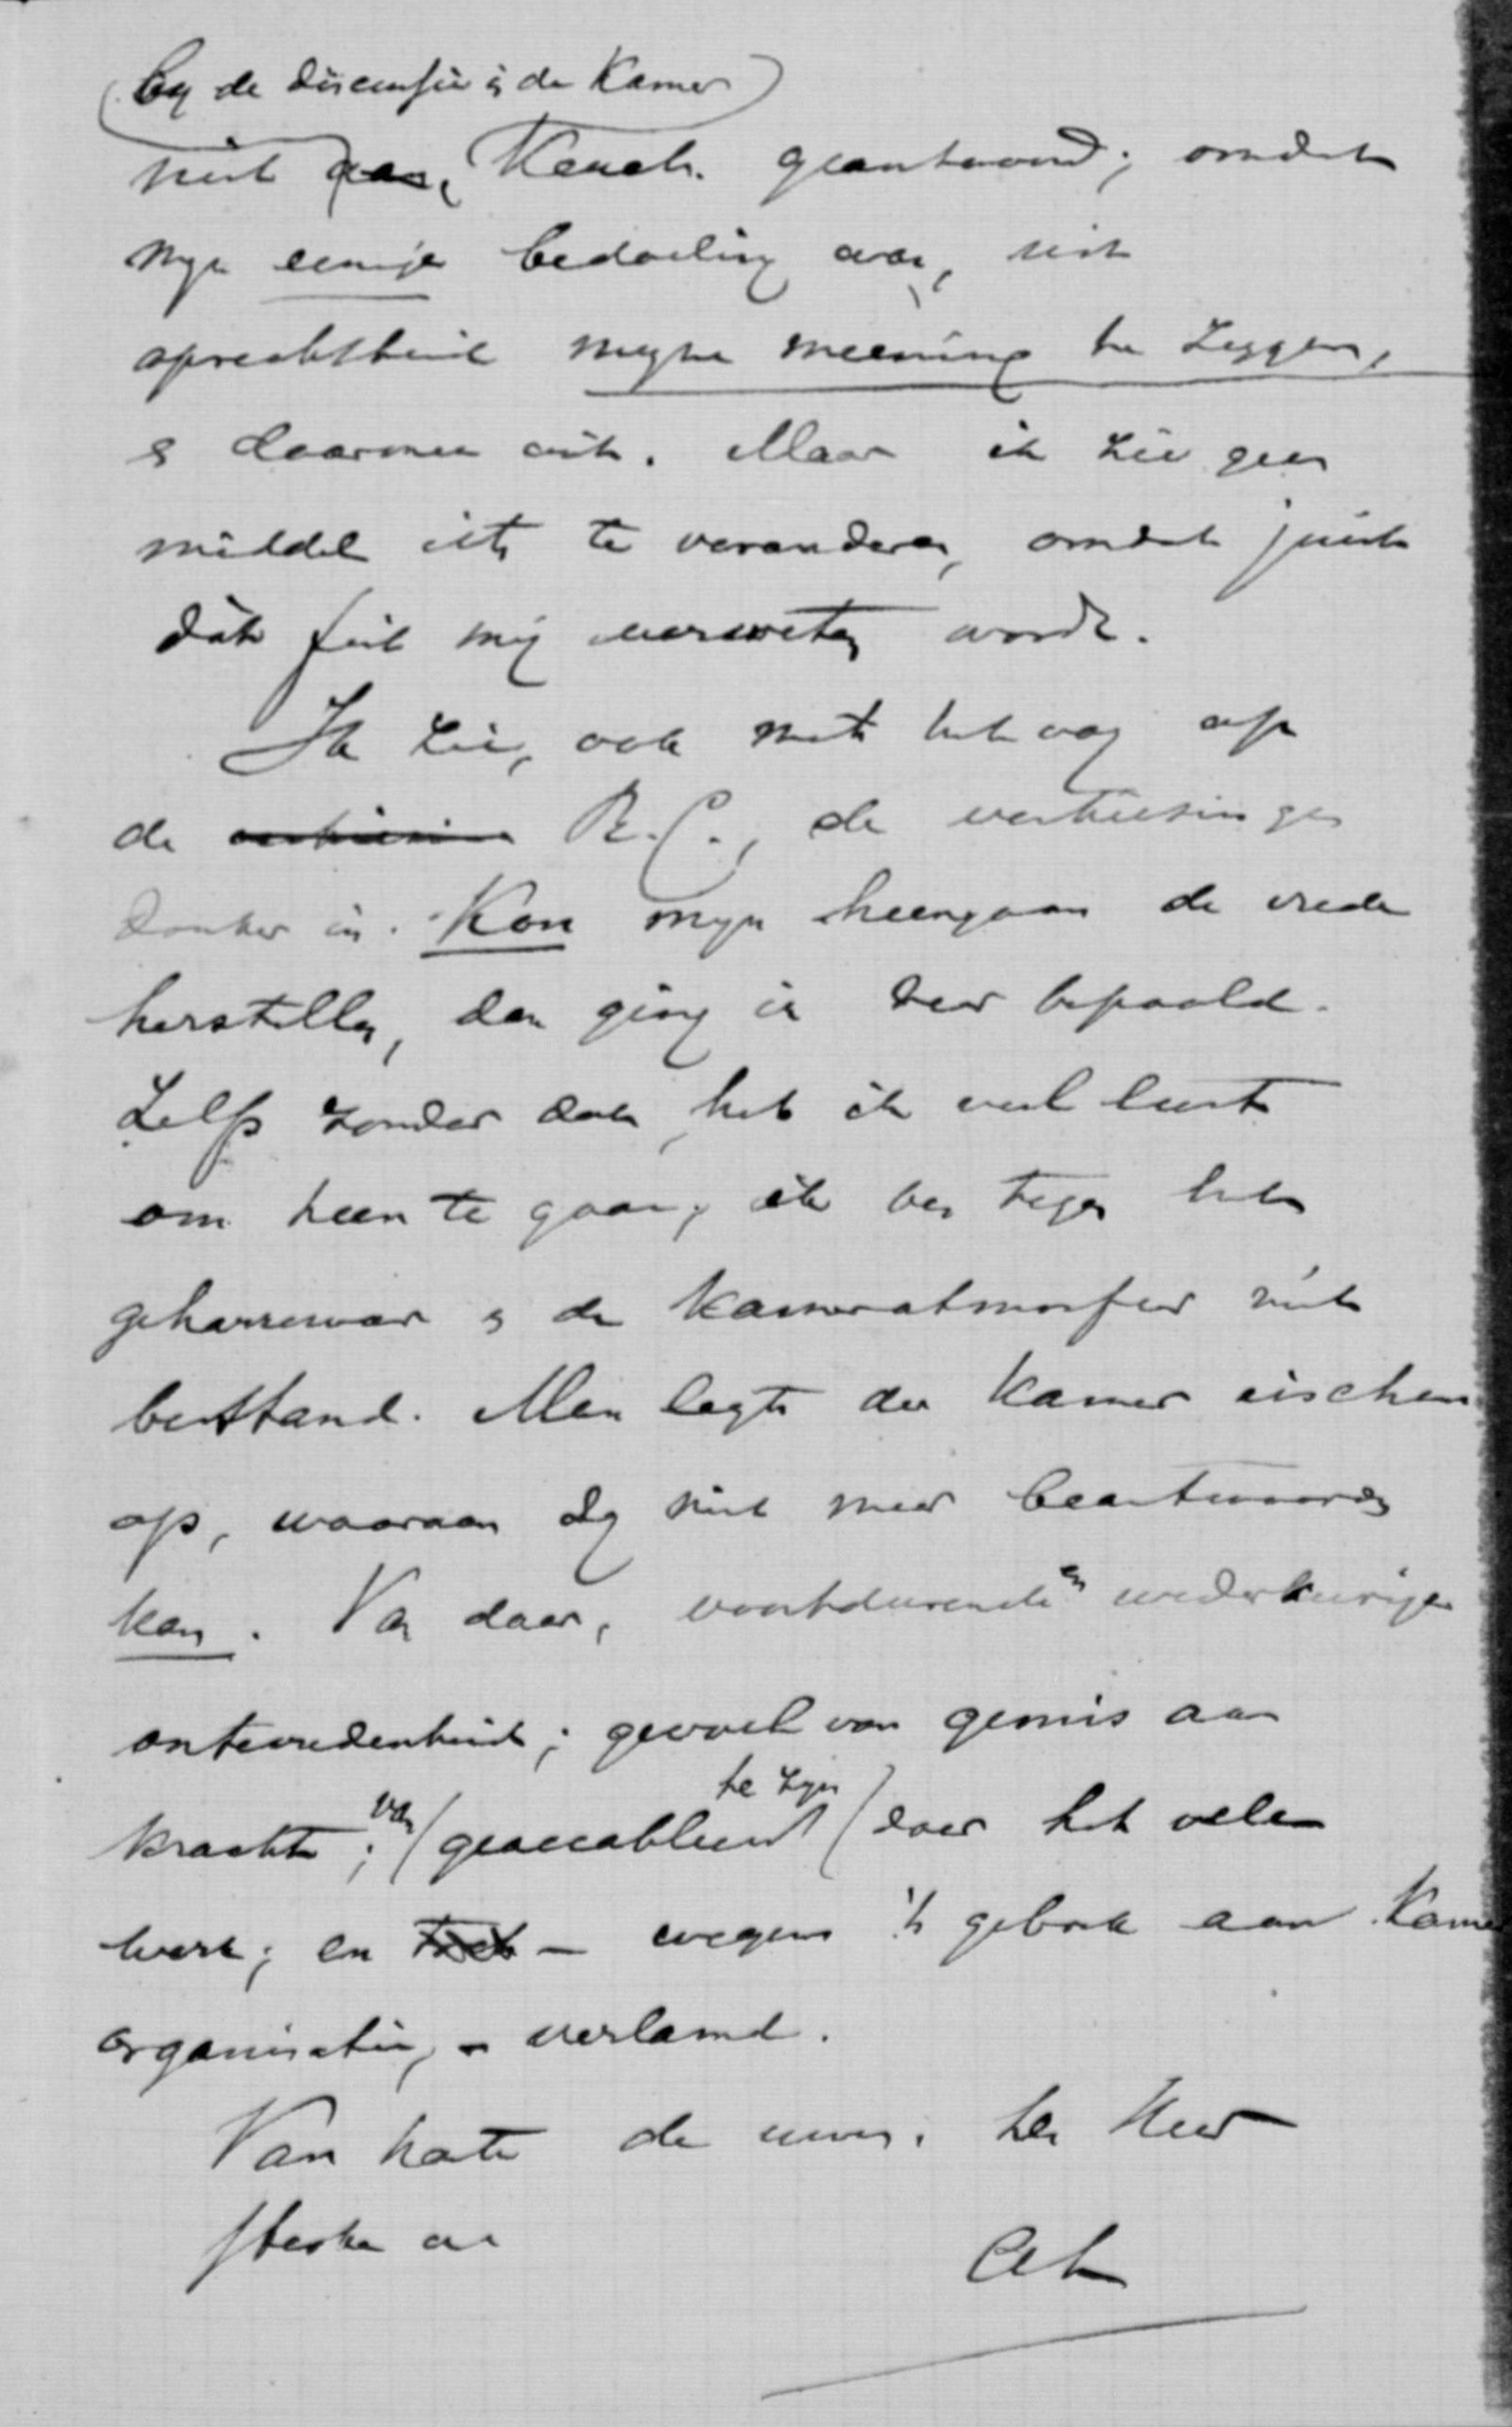 (by de discussie in de Kamer)
niet aan, Keuch. geantwoord; omdat
myn eenige bedoeling was, met
oprechtheid myne meening te zeggen,
en daarmee uit. Maar ik zie geen
middel iets te veranderen, omdat juist
dát feit mij verweten wordt.
Ik zie, ook met het oog op
de R.C., de verkiezingen
donker in. Kon myn heengaan de vrede
herstellen, dan ging ik zeer bepaald.
Zelfs zonder dat heb ik veel lust
om heen te gaan; ik ben tegen het
geharrewar en de Kameratmosfeer niet
bestand. Men legt der Kamer eischen
op, waaraan zij niet meer beantwoorden
kan. Van daar, voortdurende en wederkeerige
ontevredenheid; gevoel van gemis aan
kracht; van (geaccableerd te zyn) door het vele
werk; en toch — wegens 't gebrek aan Kamer
organisatie, - verlamd.
Van harte de uwe. de Heer
sterke u